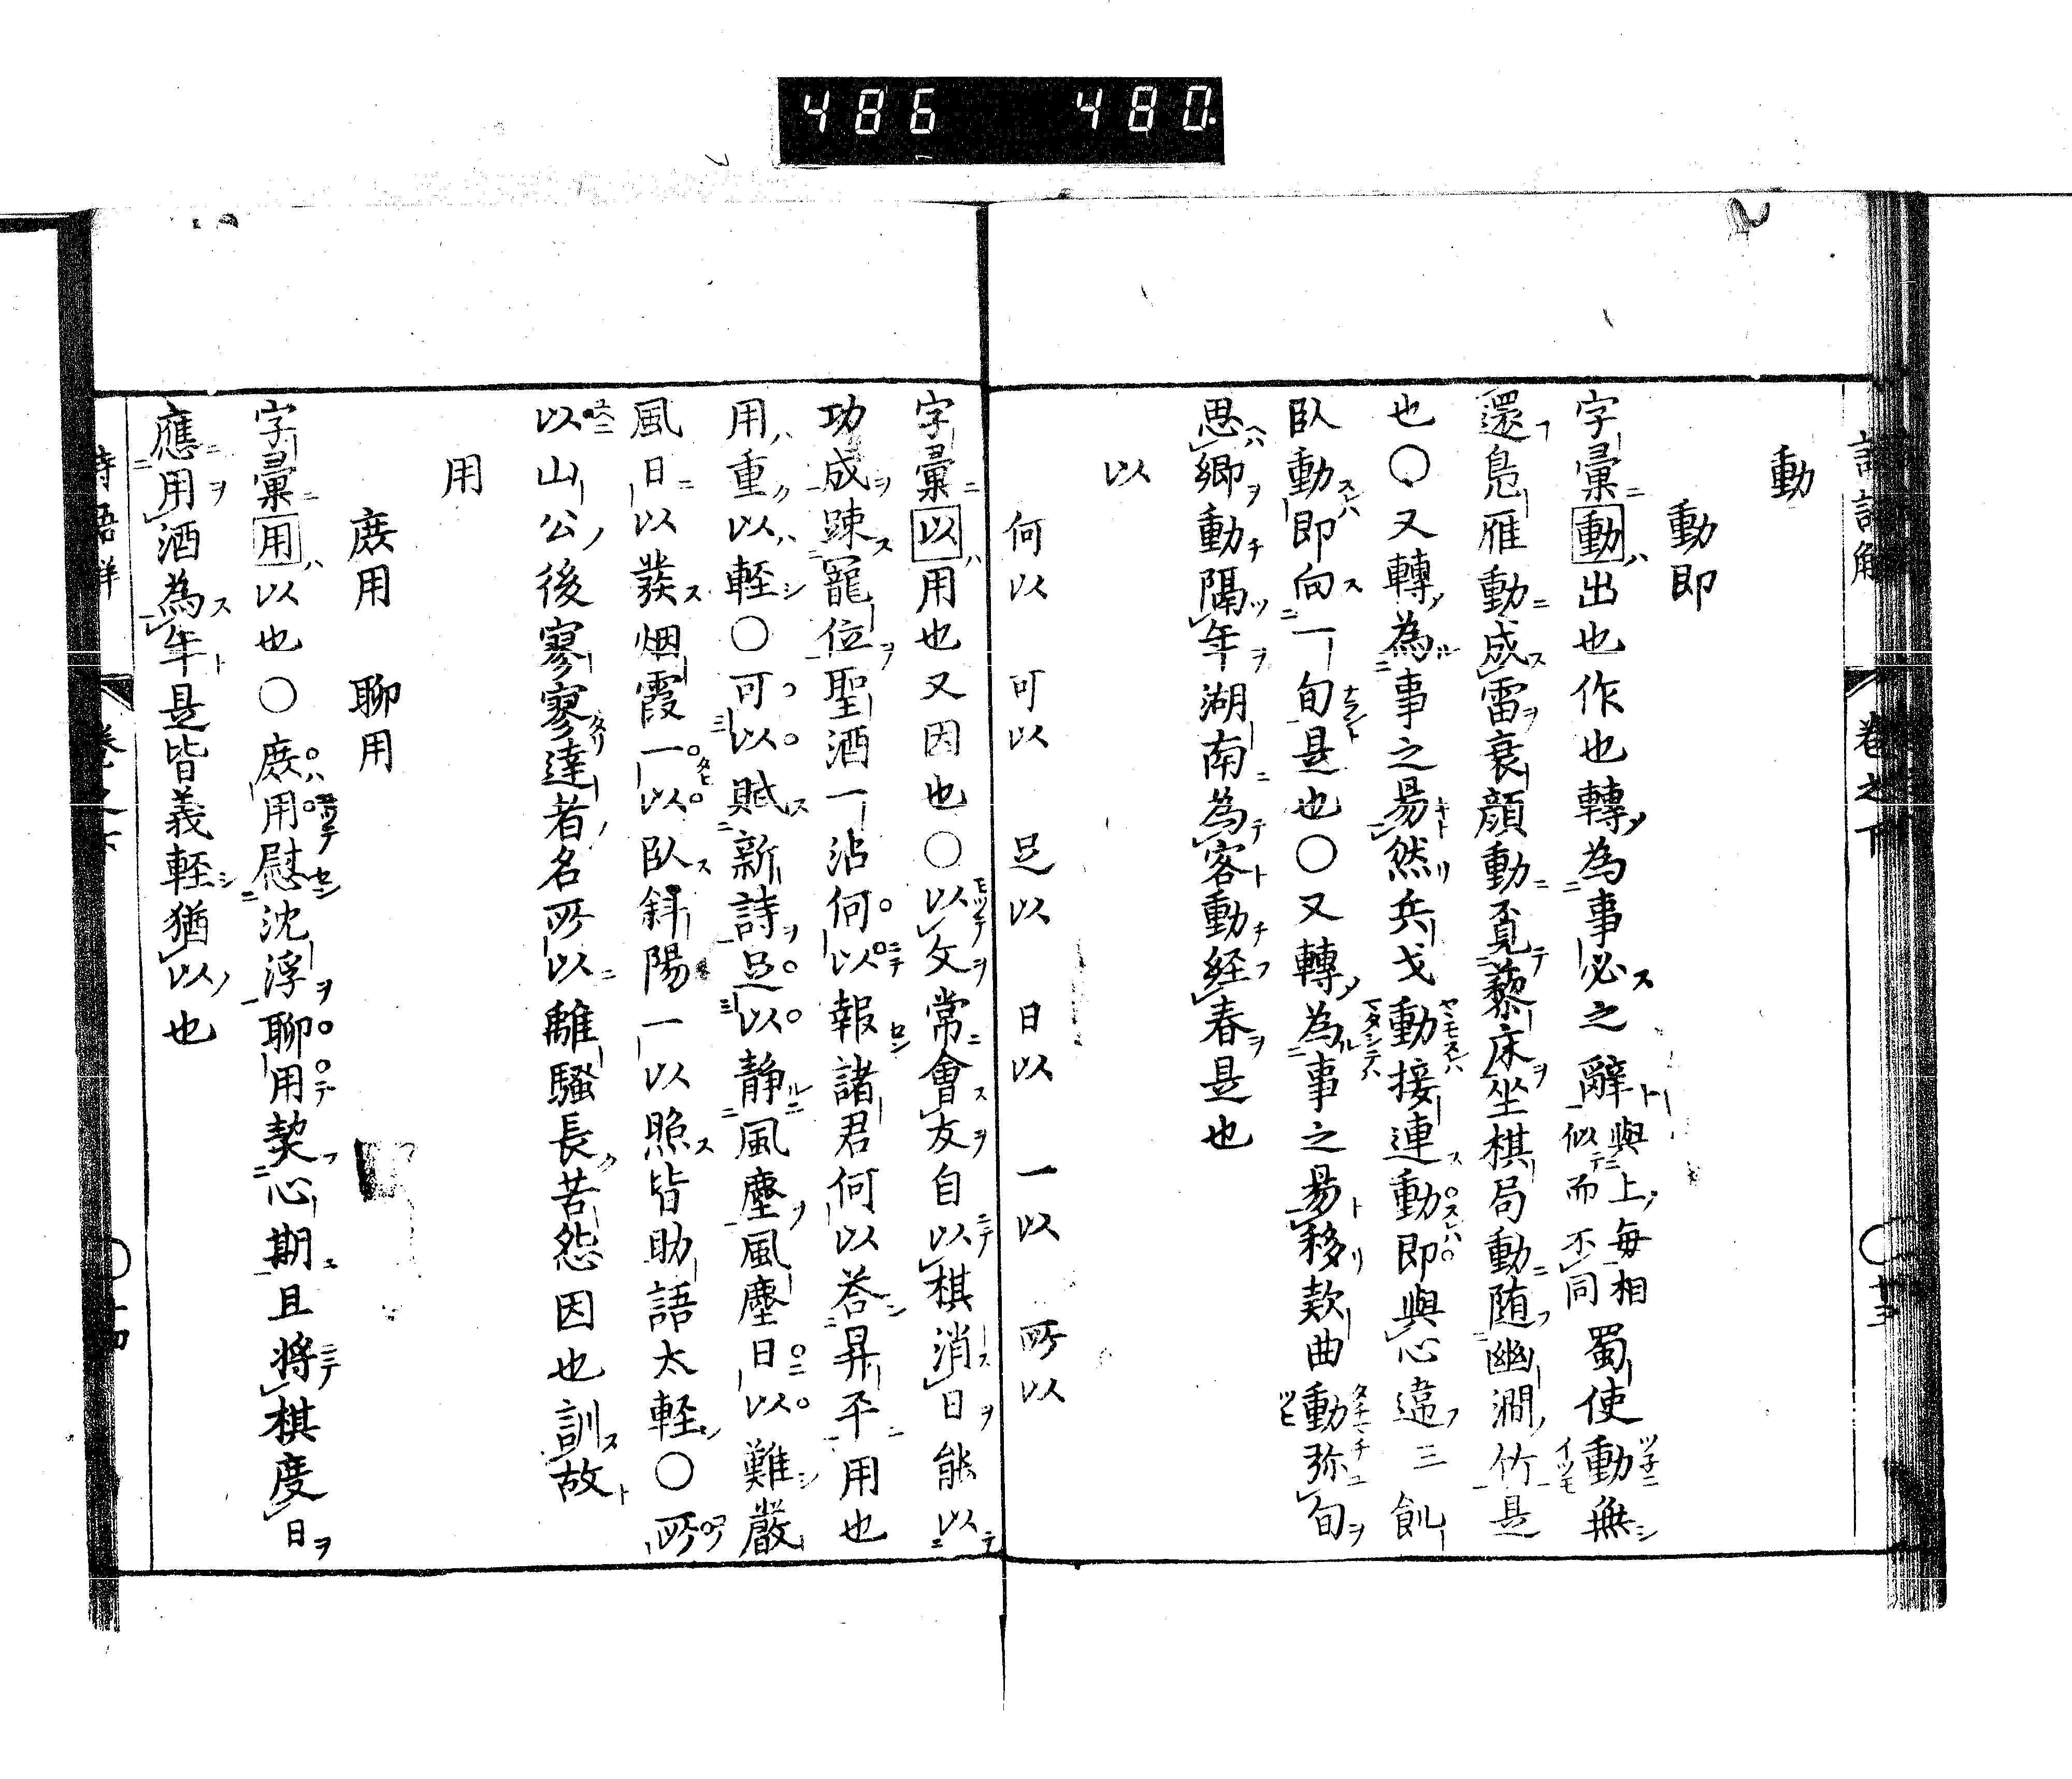 486 480.
動
動即
字彙動出也作也轉為事必之辭與上每相似而不同蜀使動無
還鳬雁動成雷衰顔動覓藜床坐棋局動随幽澗竹是
也〇又轉為事之易然兵戈動接連動即與心違三飢
臥動即向一旬是也〇又轉為事之易移歎曲動弥旬
思卿動隔年湖南為客動経春是也
以
何以 可以 足以 日以 一以 所以
字彙以用也又因也〇以文常會友自以棋消日能以
功成疎寵位聖酒一沾何以報諸君何以荅昇平用也
用重以軽〇可以賦新詩足以静風塵風塵日以難嚴
風日以發烟霞一以臥斜陽一以照皆助語太軽〇所
以山公後寥寥達者名所以離騒長苦怨因也訓故
用
庶用 聊用
字彙用以也〇庶用慰沈浮聊用契心期且将棋度日
應用酒為年是皆義軽猶以也